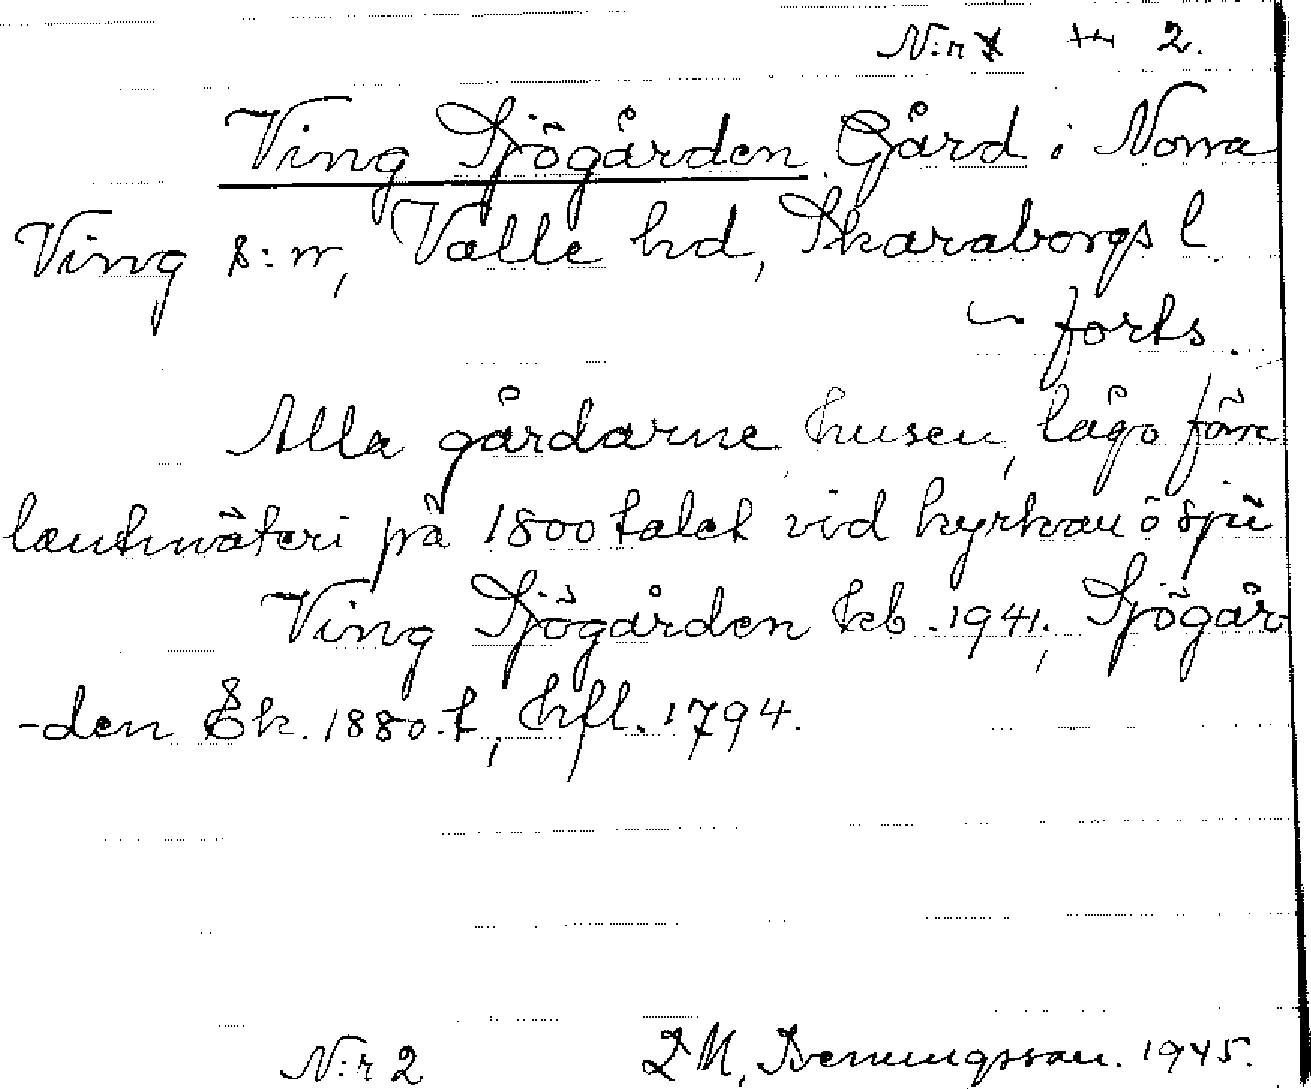 N:r 2.
Ving Sjögården Gård i Norra
Ving s:n, Valle hd, Skaraborgs l.
forts.
Alla gårdarne husen, lågo före
lantmäteri på 1800 talet vid kyrkan ö sjü
Ving Sjögården kb. 1941, Sjögår
-den Ek. 1880.t, hfl. 1794.
N:r 2 Benningssan. 1945.